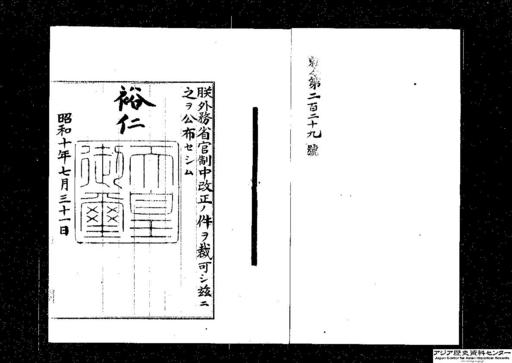 勅令第二百二十九號
朕外務省官制中改正ノ件ヲ裁可シ茲ニ
之ヲ公布セシム
裕仁
天皇御璽
昭和十年七月三十一日
アジア歴史資料センター
Japan Center for Asian Historical Records